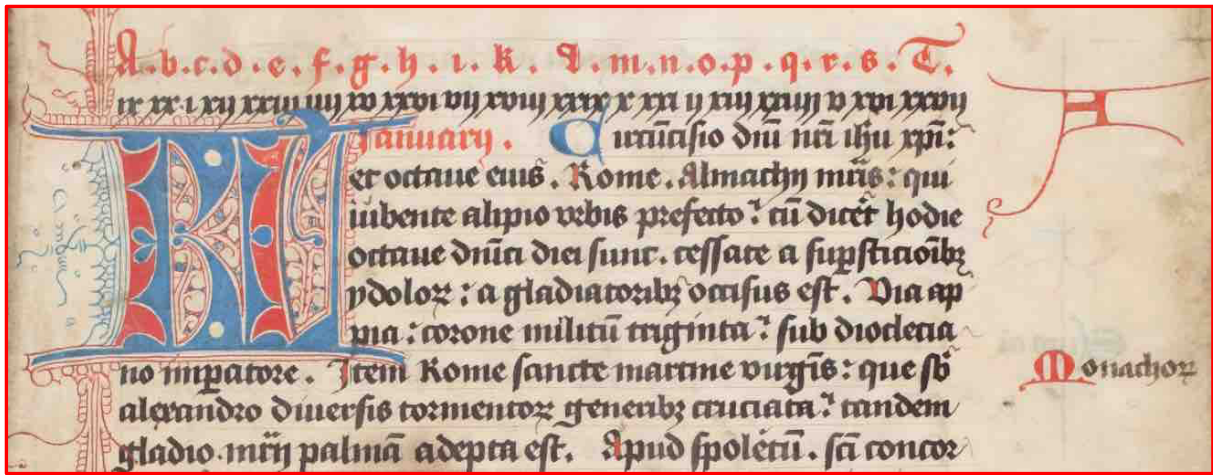 A.b.c.d.e.f.g.h.i.k.l.m.n.o.p.q.r.s.T.
ix xx i xij xxiij iiij xv xxvi vij xviij xxix x xxi ij xiij xxiiij v xvi xxvij
KL Januarij. Circūcisio dn̄i nr̄i ihu xp̄i: A
et octaue eius. Rome. Almachij mr̄is: qui
iubente alipio vrbis prefecto: cū dicēt hodie
octaue dn̄ici diei sunt. cessate a sup̱sticioībꝫ
ydoloꝝ: a gladiatoribꝫ occisus est. Via ap
pia: corone militū triginta: sub dioclecia
no imꝑatore. Item Rome sancte martine virgīs: que sb̄ Monachoꝝ
alexandro diuersis tormentoꝝ generibꝫ cruciata: tandem
gladio mr̄ij palmā adepta est. Apud spoletū. sc̄i concor